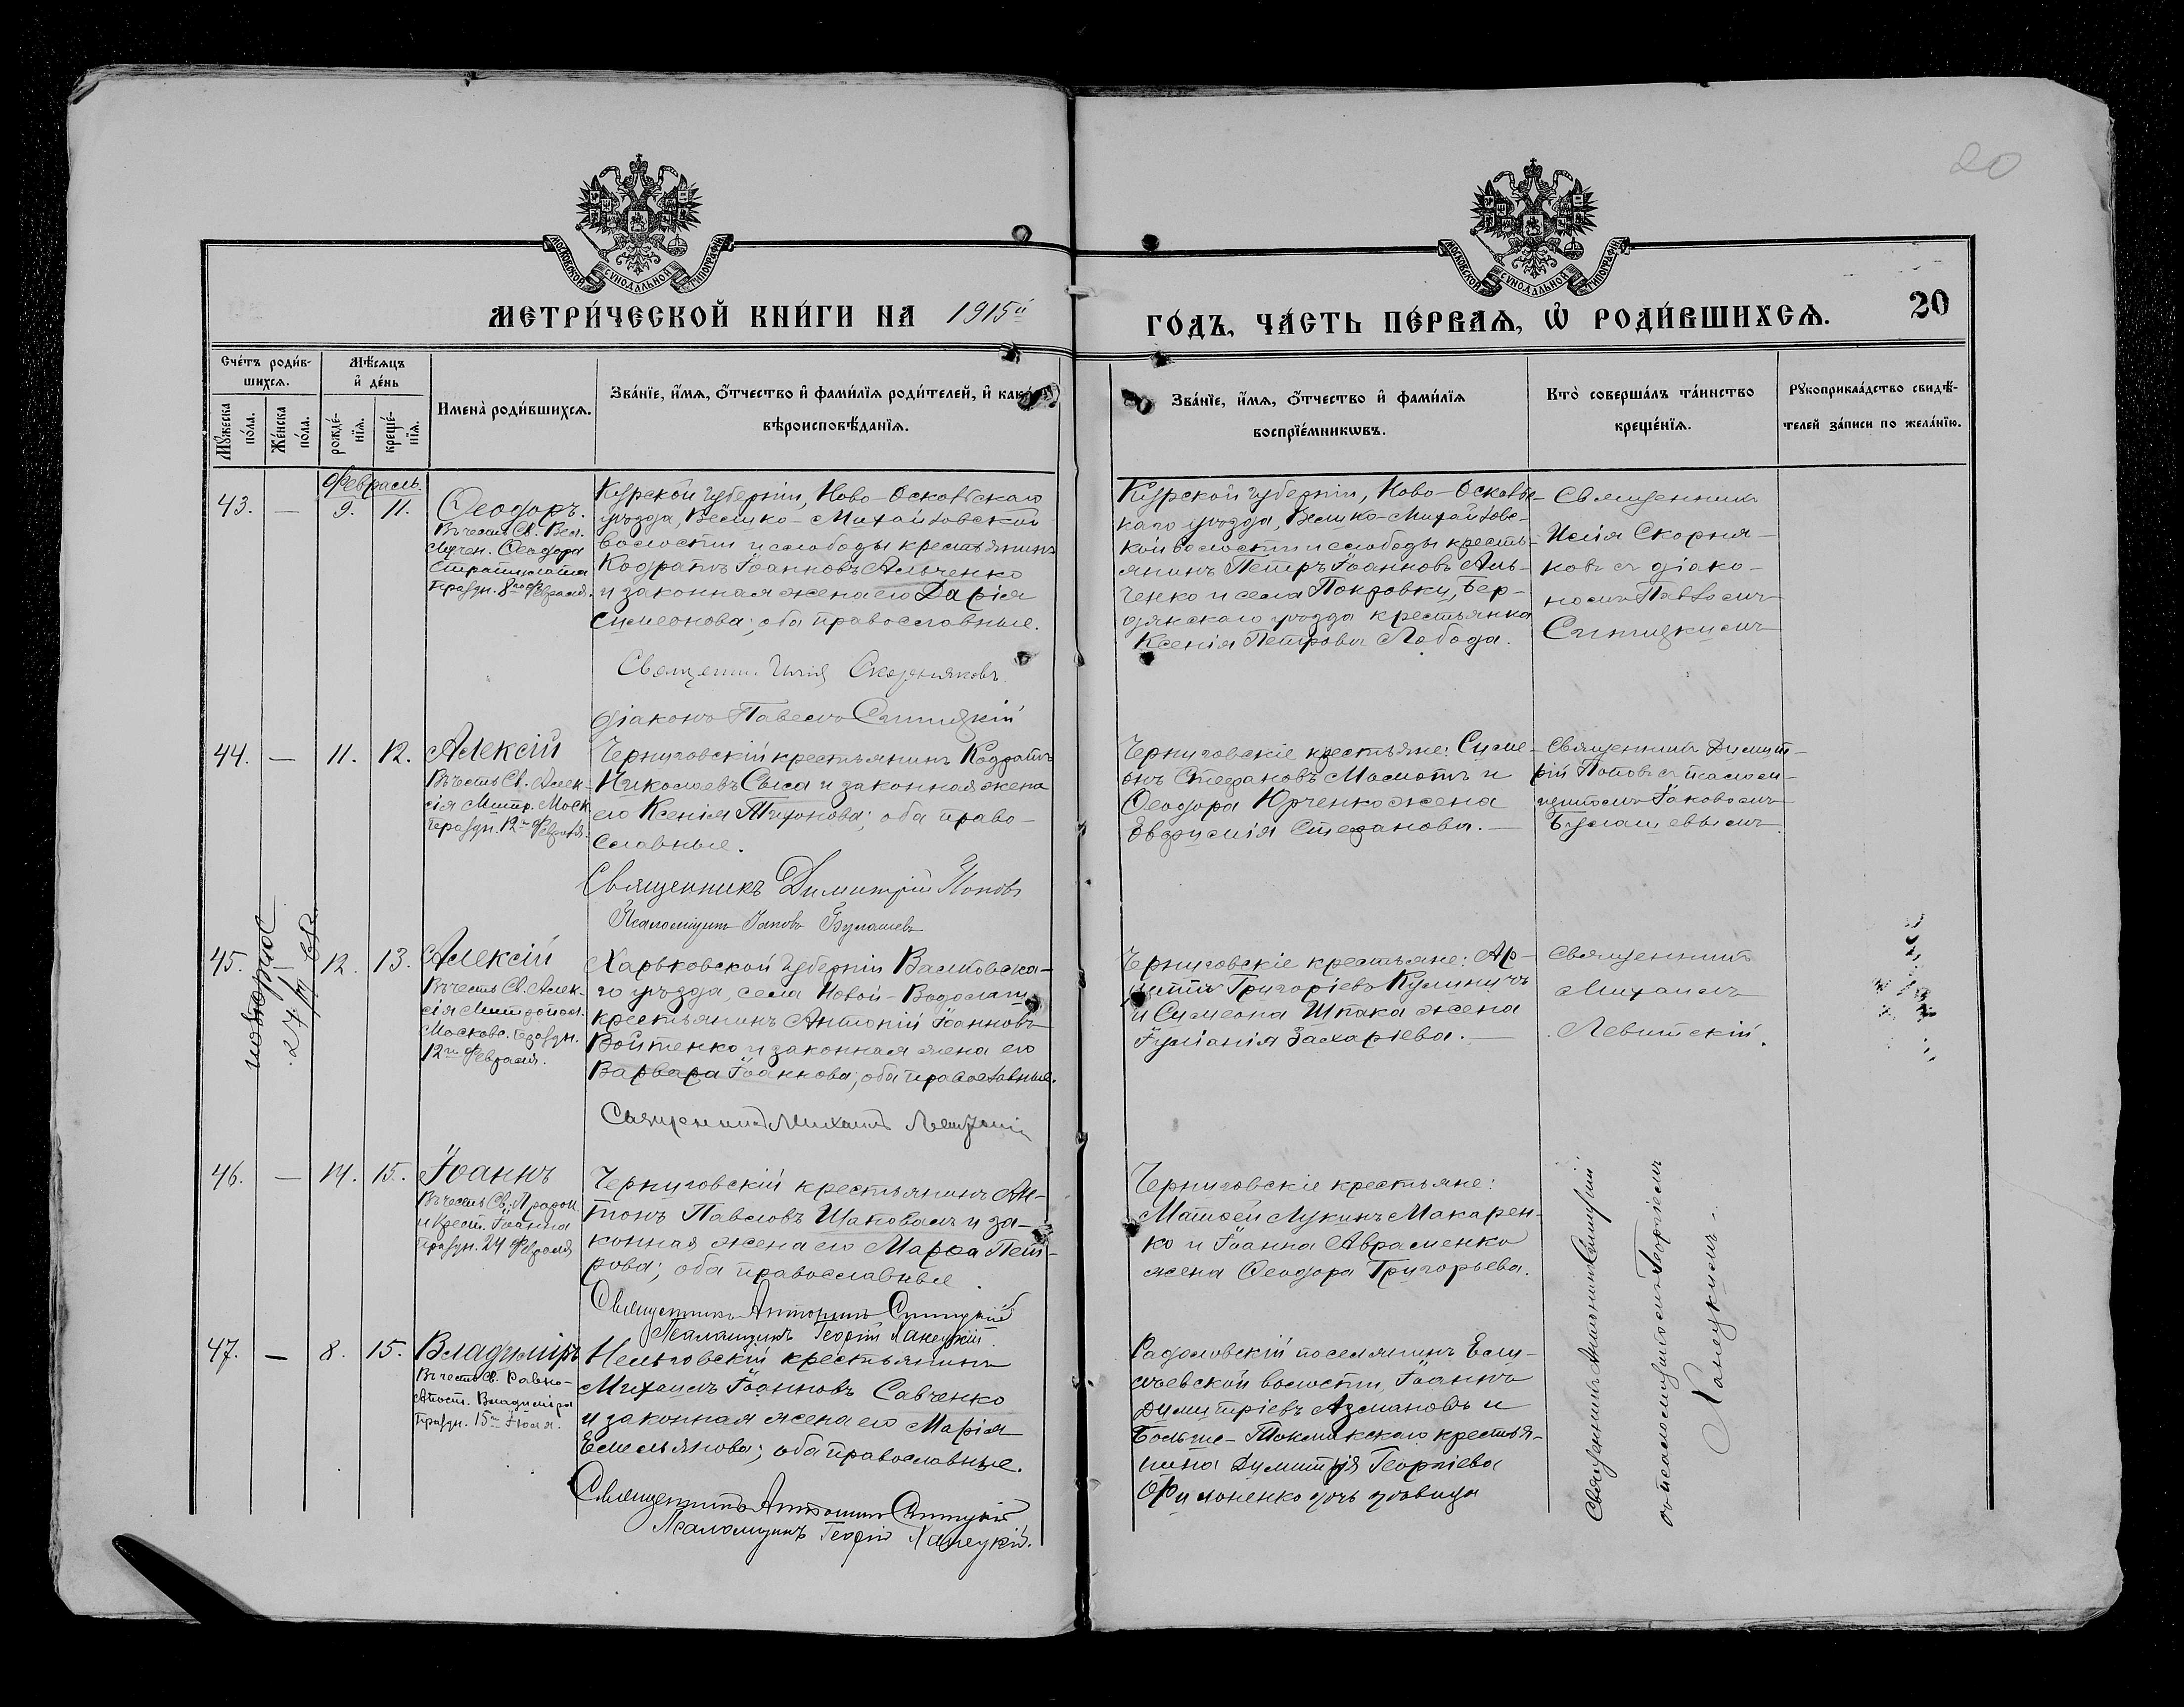 20
МОСКОВСКОЙ СѴНОДАЛЬНОЙ ТИПОГРАФІИ
МОСКОВСКОЙ СѴНОДАЛЬНОЙ ТИПОГРАФІИ
МЕТРИ́ЧЕСКОЙ КНИ́ГИ НА 1915й
ГО́ДЪ, ЧА́СТЬ ПЕ́РВАѦ, Ѽ РОДИ́ВШИХСѦ.
20
Сче́тъ роди́в-
шихсѧ.
Мѣ́сѧцъ
и҆ де́нь
Мꙋ́жеска
по́ла.
Же́нска
по́ла.
рожде́-
нїѧ.
креще́-
нїѧ.
Имена̀ роди́вшихсѧ.
Зва́нїе, и҆́мѧ, ѻ҆́тчество и҆ фами́лїѧ роди́телей, и҆ како́
вѣроисповѣ́данїѧ.
Зва́нїе, и҆́мѧ, ѻ҆́тчество и҆ фами́лїѧ
воспрїе́мникѡвъ.
Кто̀ соверша́лъ та́инство
креще́нїѧ.
Рꙋкоприкла́дство свидѣ́-
телей за́писи по жела́нїю.
Февраль.
43. — 9. 11.
Ѳеодоръ.
Въ честь Св. Вел.
Мучен. Ѳеодора
Стратилата
Праздн. 8го Февраля.
Курской губерніи, Ново-Оскольскаго
уѣзда, Велико-Михайловской
волости и слободы крестьянинъ
Кодратъ Іоанновъ Альченко
и законная жена его Дарія
Симеонова; оба православные.
Священн. Илія Скорняковъ.
Діаконъ Павелъ Синицкій
Курской губерніи, Ново-Осколь-
каго уѣзда, Велико-Михайловс-
кой волости и слободы кресть-
янинъ Петръ Іоанновъ Аль-
ченко и села Покровки, Бер-
дянскаго уѣзда крестьянка
Ксенія Петрова Лобода.
Священникъ
Илія Скорня-
ковъ съ діако-
номъ Павломъ
Синицкимъ
44. — 11. 12.
Алексій
Въ честь Св. Алек-
сія Митр. Моск.
Праздн. 12го Февраля.
Черниговскій крестьянинъ Кодратъ
Николаевъ Сыса и законная жена
его Ксенія Тихонова; оба право-
славные.
Священникъ Димитрій Поповъ
Псаломщикъ Іаковъ Булашевъ
Черниговскіе крестьяне: Симе-
онъ Стефановъ Маслотъ и
Ѳеодора Юрченко жена
Евфимія Стефанова. —
Священникъ Димит-
рій Поповъ съ псалом-
щикомъ Іаковомъ
Булашевымъ
45. — 12. 13.
повторно
Алексій
Въ честь Св. Алек-
сія Митропол.
Москов. Праздн.
12го Февраля.
Харьковской губерніи Валковска-
го уѣзда, села Новой-Водолаги
крестьянинъ Антоній Іоанновъ
Войтенко и законная жена его
Варвара Іоаннова; оба православные.
Священникъ Михаилъ Левитскій
Черниговскіе крестьяне: Ар-
Григоріевъ Кулиничъ
и Симеона Шпака жена
Іуліанія Захаріева. —
Священникъ
Михаилъ
Левитскій.
46. — 14. 15.
Іоаннъ
Въ честь Св. Прор.
и Крест. Іоанна
Праздн. 24 Февраля
Черниговскій крестьянинъ Ан-
тонъ Павловъ Шаповалъ и за-
конная жена его Марѳа Пет-
рова; оба православные.
Священникъ Антонинъ Синицкій
Псаломщикъ Георгій Ханецкій.
Черниговскіе крестьяне:
Матѳей Лукинъ Макарен-
ко и Іоанна Авраменко
жена Ѳеодора Григорьева.
Священникъ Антонинъ Синицкій
съ псаломщикомъ Георгіемъ
Ханецкимъ.
47. — 8. 15.
Владиміръ
Въ честь Св. Равно-
апост. Владиміра
Праздн. 15го Іюля.
Нельговскій крестьянинъ
Михаилъ Іоанновъ Савченко
и законная жена его Марія
Емельянова; оба православные.
Священникъ Антонинъ Синицкій
Псаломщикъ Георгій Ханецкій.
Радоловскій поселянинъ
волости, Іоаннъ
Димитріевъ Азмановъ и
Больше-Токмакскаго крестья-
нина Димитрія Георгіева
Филоненко дочь дѣвица